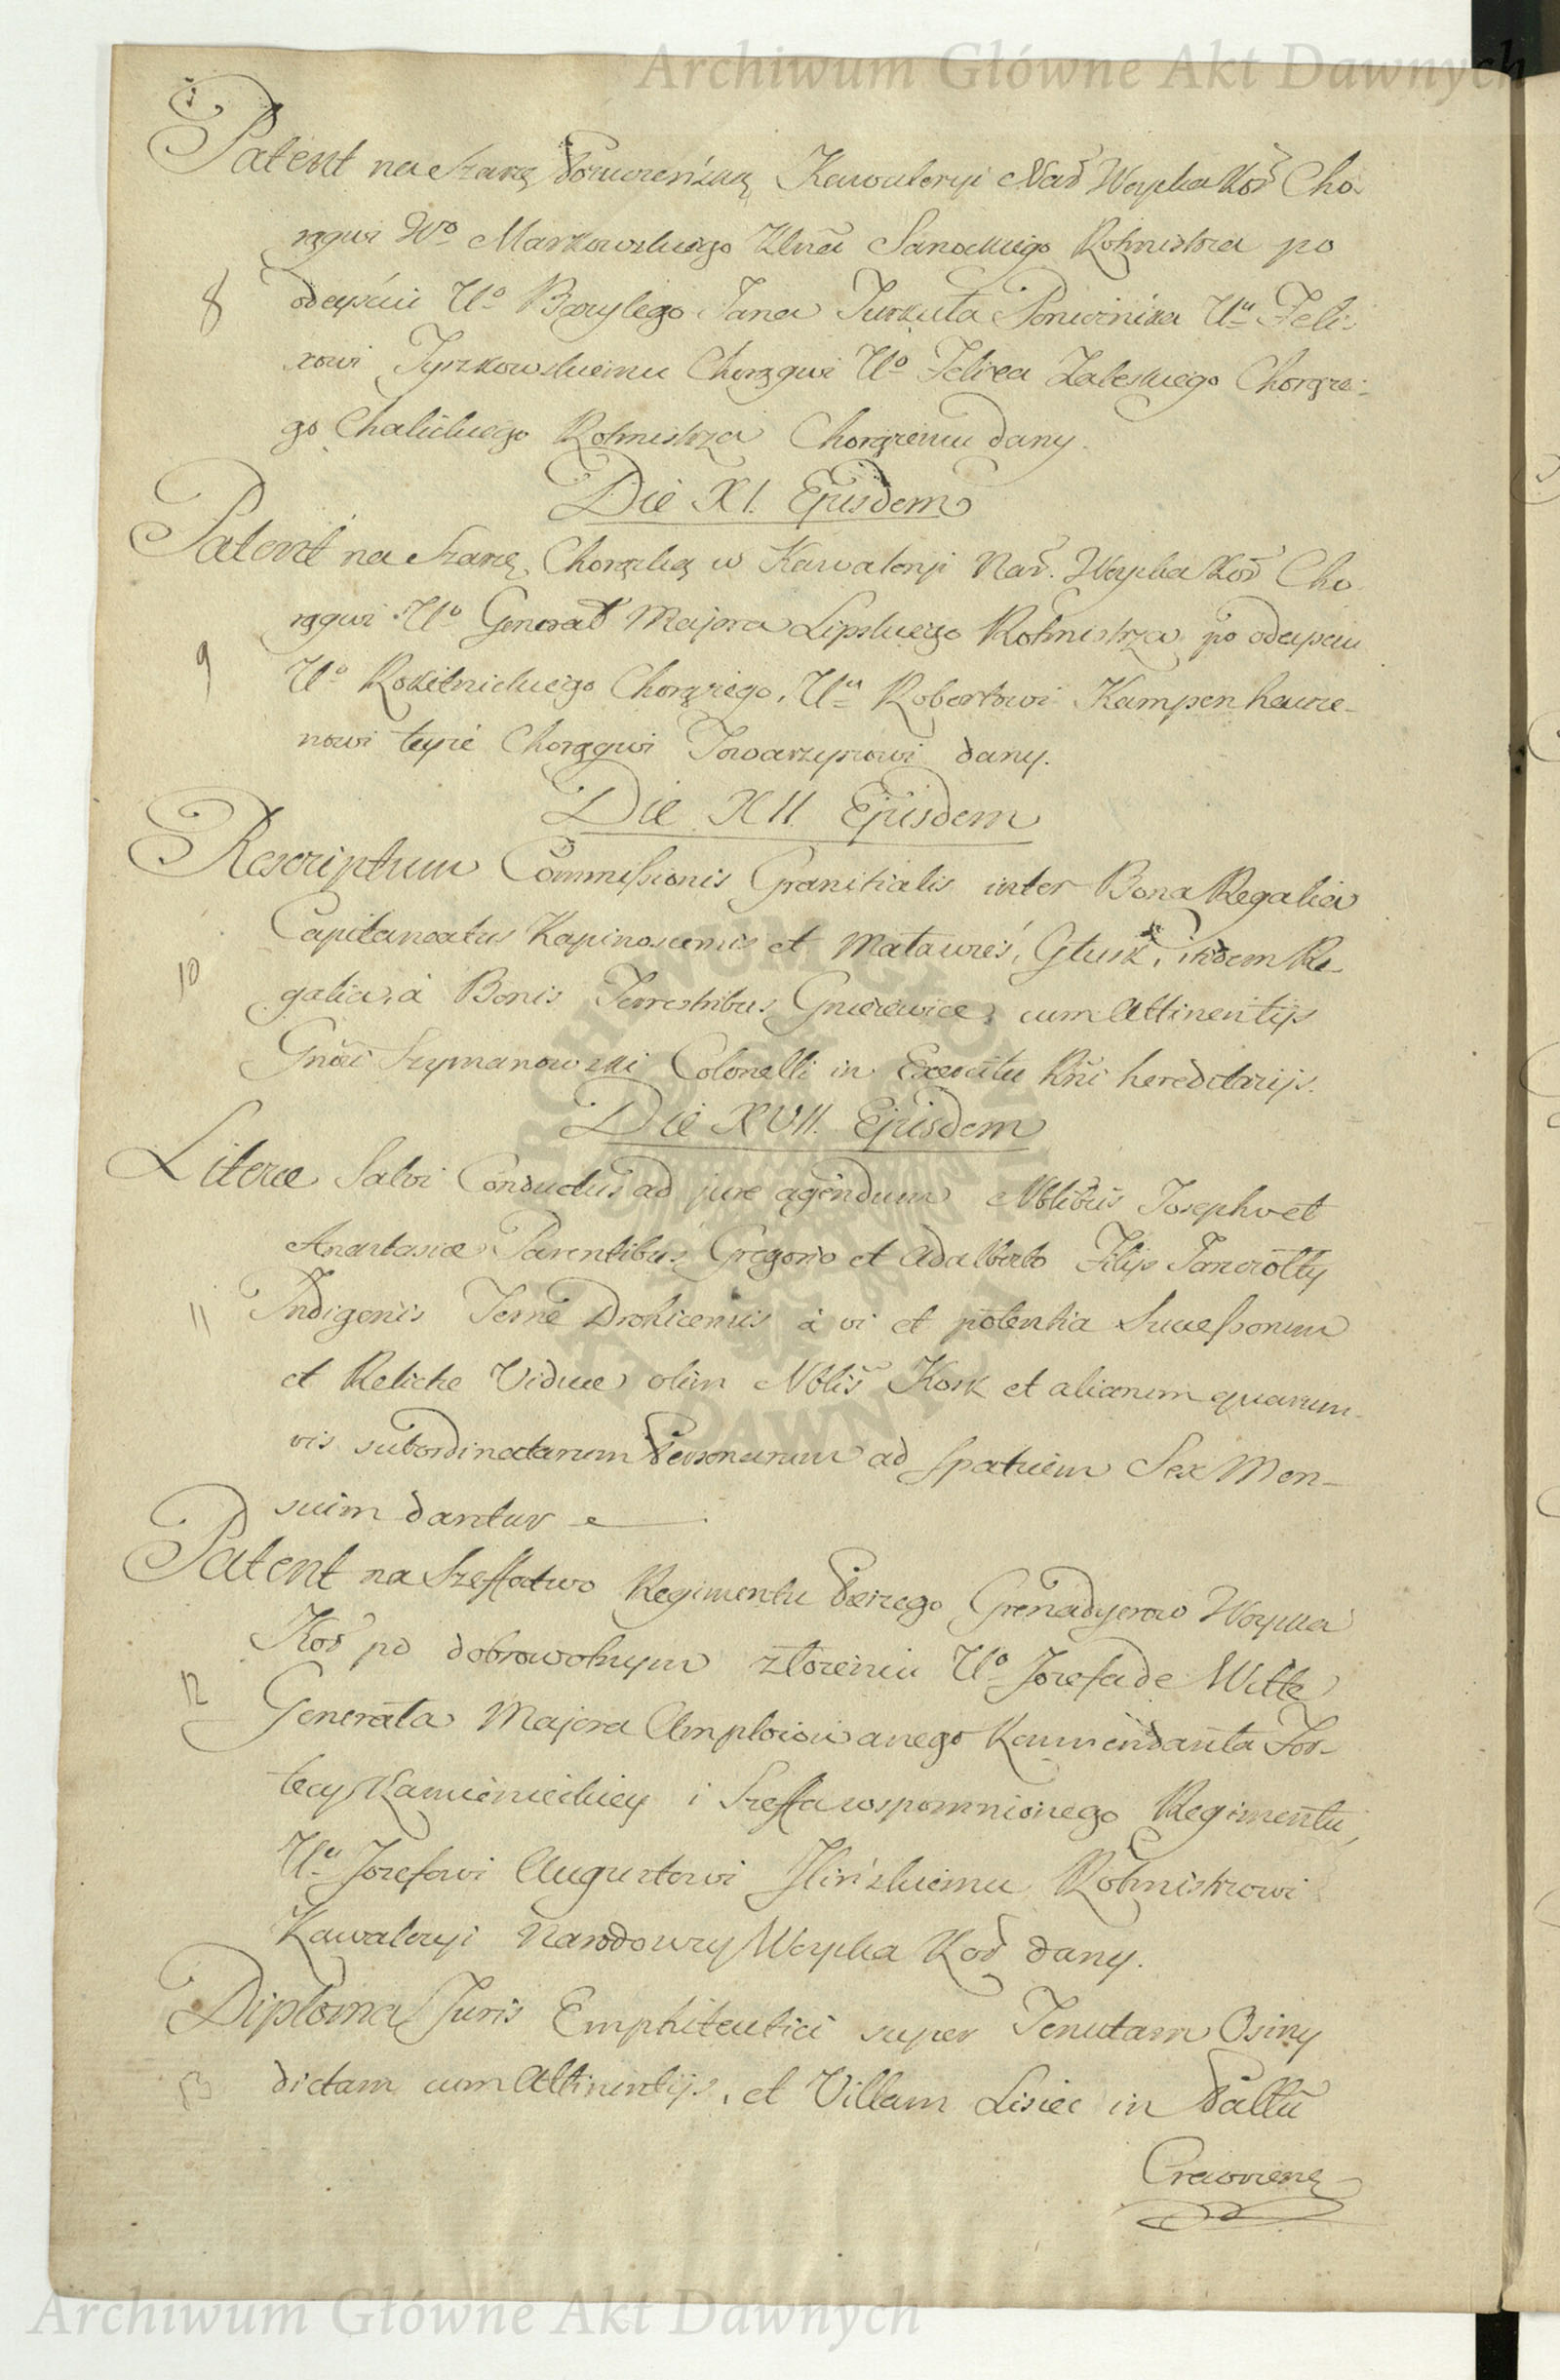 Archiwum Główne Akt Dawnych
Patent na Szarzę Porucznika Kawaleryi Nar Woyska Kor Cho-
rągwi Wo Markowskiego Sanockiego Rotmistrza po
8 odeyściu Uo Jana Jurkuła Porucznika Uu Feli-
xowi Tyszkowskiemu Chorągwi Uo Felixa Zaleskiego Chorąże-
go Chalickiego Rotmistrza Chorążemu dany.
Die XI. Ejusdem
Patent na Szarżę Chorążką w Kawaleryi Nar. Woyska Kor Cho-
rągwi Uo General Majora Lipskiego Rotmistrza po odeyściu
9 Uo Rokitnickiego Chorążego, Uu Robertowi Kampenhauze-
nowi teyże Chorągwi Towarzyszowi dany.
Die XII. Ejusdem
Rescriptum Commissionis Granitialis inter Bona Regalia
Capitaneatus Kapinoscensis et Matawieś, Głusk, itidem Re-
10 galia, à Bonis Terrestribus Gniewice, cum Attinentijs
Gnosi Szymanowski Colonelli in Exercitu Rni hereditarijs.
Die XVII. Ejusdem
Literae Salvi Conductus ad jure agendum Nblibus Josepho et
Anastasiae Parentibus Gregorio et Adalberto Filijs
11 Indigenis Terrae Drohicensis à vi et potentia Successorum
et Relictae Viduae olim Nblis Kosk et aliarum quarum-
vis subordinatarum Personarum ad spatium Sex Men-
sium dantur
Patent na Szeffostwo Regimentu Pieszego Grenadyerow Woyska
Kor po dobrowolnym złożeniu Uo Jozefa de Witte
12 Generała Majora Amploiowanego Kommendanta For-
tecy Kamienieckiey i Szeffa wspomnionego Regimentu,
Uu Jozefowi Augustowi Ilińskiemu Rotmistrzowi
Kawaleryi Narodowey Woyska Kor dany.
Diploma Juris Emphiteutici super Tenutam Osiny
13 dictam cum Attinentijs, et Villam Lisiec in Pallu
Archiwum Główne Akt Dawnych